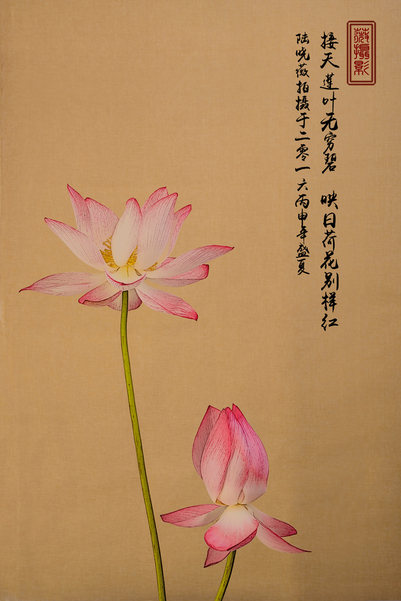 薇摄影
接天莲叶无穷碧 映日荷花别样红
陆晓薇拍摄于二零一六丙申年盛夏